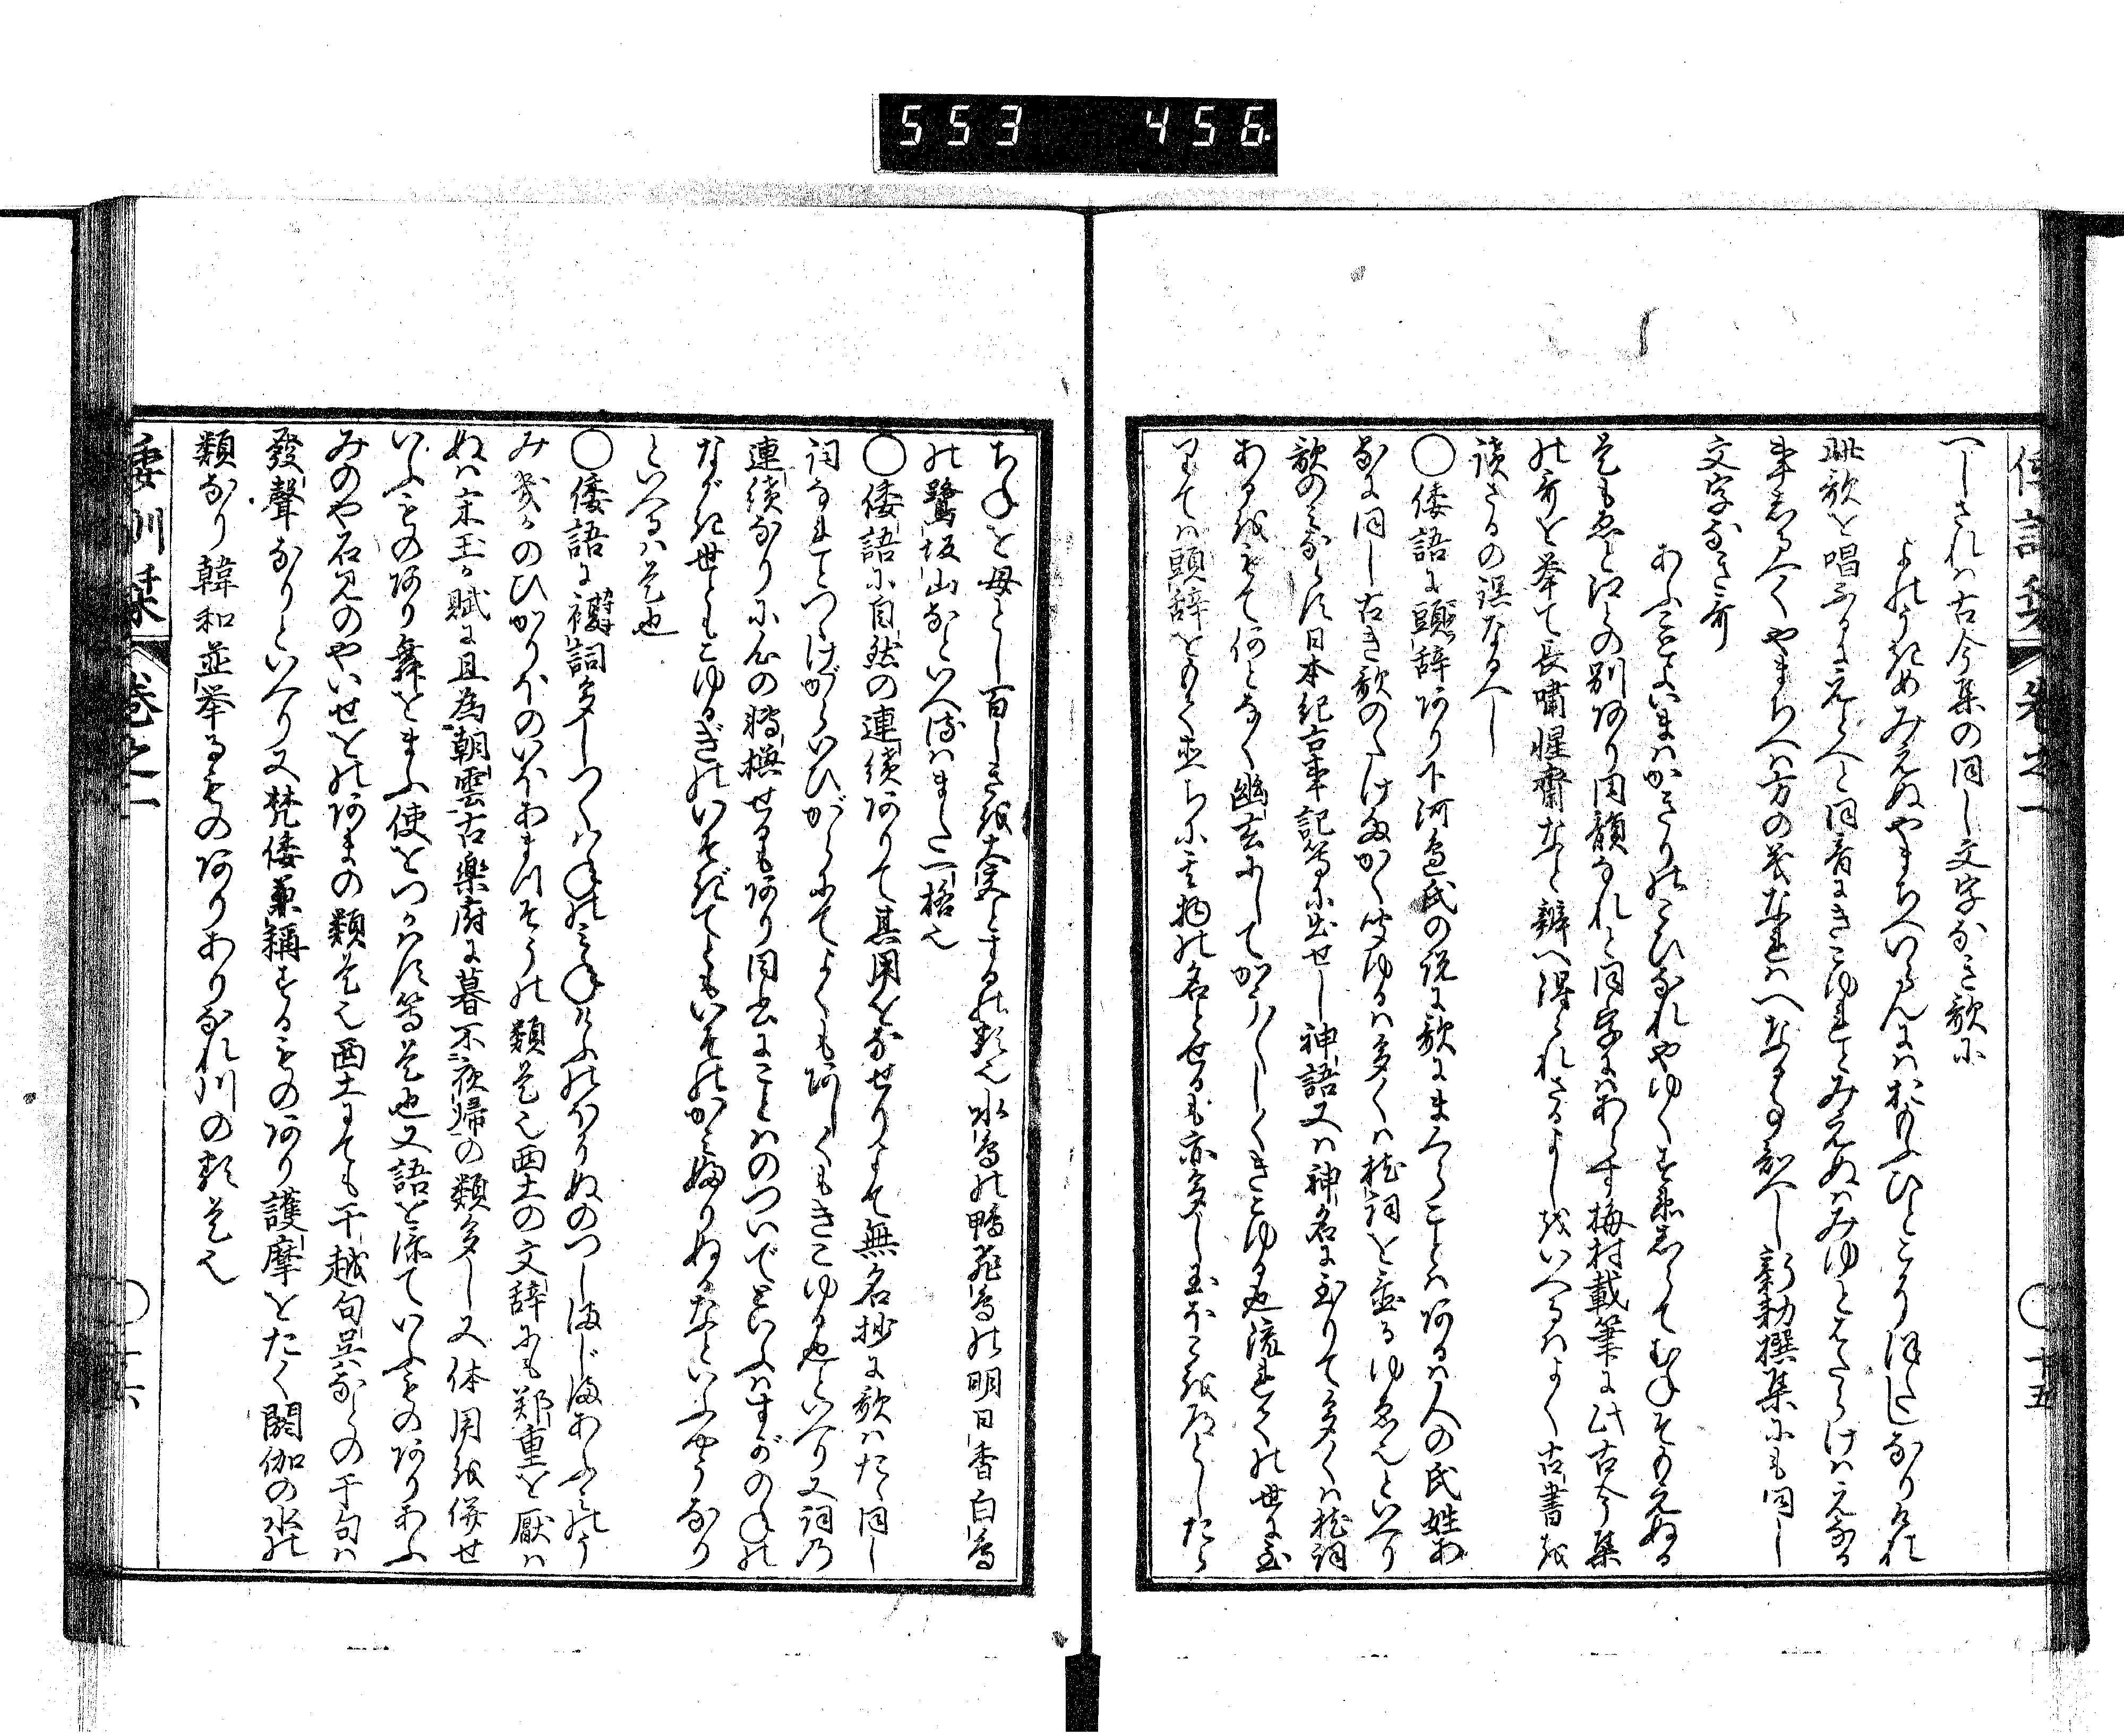 553 456
へしされは古今集の同し文字なき歌に
よのうきめみえぬやまちへいらんにはおもふひとこそほたしなりけれ
此歌を唱ふるにえとへと同音にきこゆれとみえぬはみゆとはたらけはえなる
事しるくやまちへは方の義なれはへなる事知へし新勅撰集にも同し
文字なき哥
あふことよいまはかきりのたひなれやゆくすゑしらてむねそもえぬる
是もゑとえとの別あり同韻なれと同字にはあらす梅村載筆に此古今集
の哥を挙て長嘯惺齋なと辨へ得られさるよしをいへるはよく古書を
讀さるの誤なるへし
〇倭語に頭辞あり下河邊氏の説に歌にまくらことはあるは人の氏姓あ
るに同し古き歌のたけたかく聞ゆるは多くは枕詞を置るゆゑ也といへり
歌のみならす日本紀古事記等に出せし神語又は神名に至りて多くは枕詞
あるをもて何となく幽玄にしてかうかうしくきこゆる也流れての世に至
りては頭辞をもて直ちに其物の名とせるも亦多し玉ほこを道としたら
ちねを母とし百しきを大宮とするの類也水鳥の鴨飛鳥の明日香白鳥
の鷺坂山なといへるはまた一格也
〇倭語に自然の連續ありて其用をなせりよて無名抄に歌はたゝ同し
詞なれとつゝけがらいひがらにてよくもあしくもきこゆる也といへり又詞乃
連續なりに心の轉換せるもあり同書にことはのついでといふはすがのねの
ながき世ともこゆるぎのいそぎてともいそのかみふりぬるなといふやうなり
といへるは是也
〇倭語に複詞多しつくはねのみねけふのほそぬのつしまじまあふみのう
み我かのひかりほのいほあまつそらの類是也西土の文辞にも鄭重を厭は
ぬは宋玉か賦に且為朝雲古樂府に暮不夜歸の類多し又体用を併せ
いふものあり舞をまふ使をつかはす等是也又語を添ていふものありあふ
みのや石見のやいせをのあまの類是也西土にても干越句呉なとの干句は
發聲なりといへり又梵倭兼稱するもの有り護摩をたく閼伽の水の
類なり韓和並挙るものありありなれ川の類是也
倭訓栞 巻之一 〇 十五
倭訓栞 巻之一 〇 十六